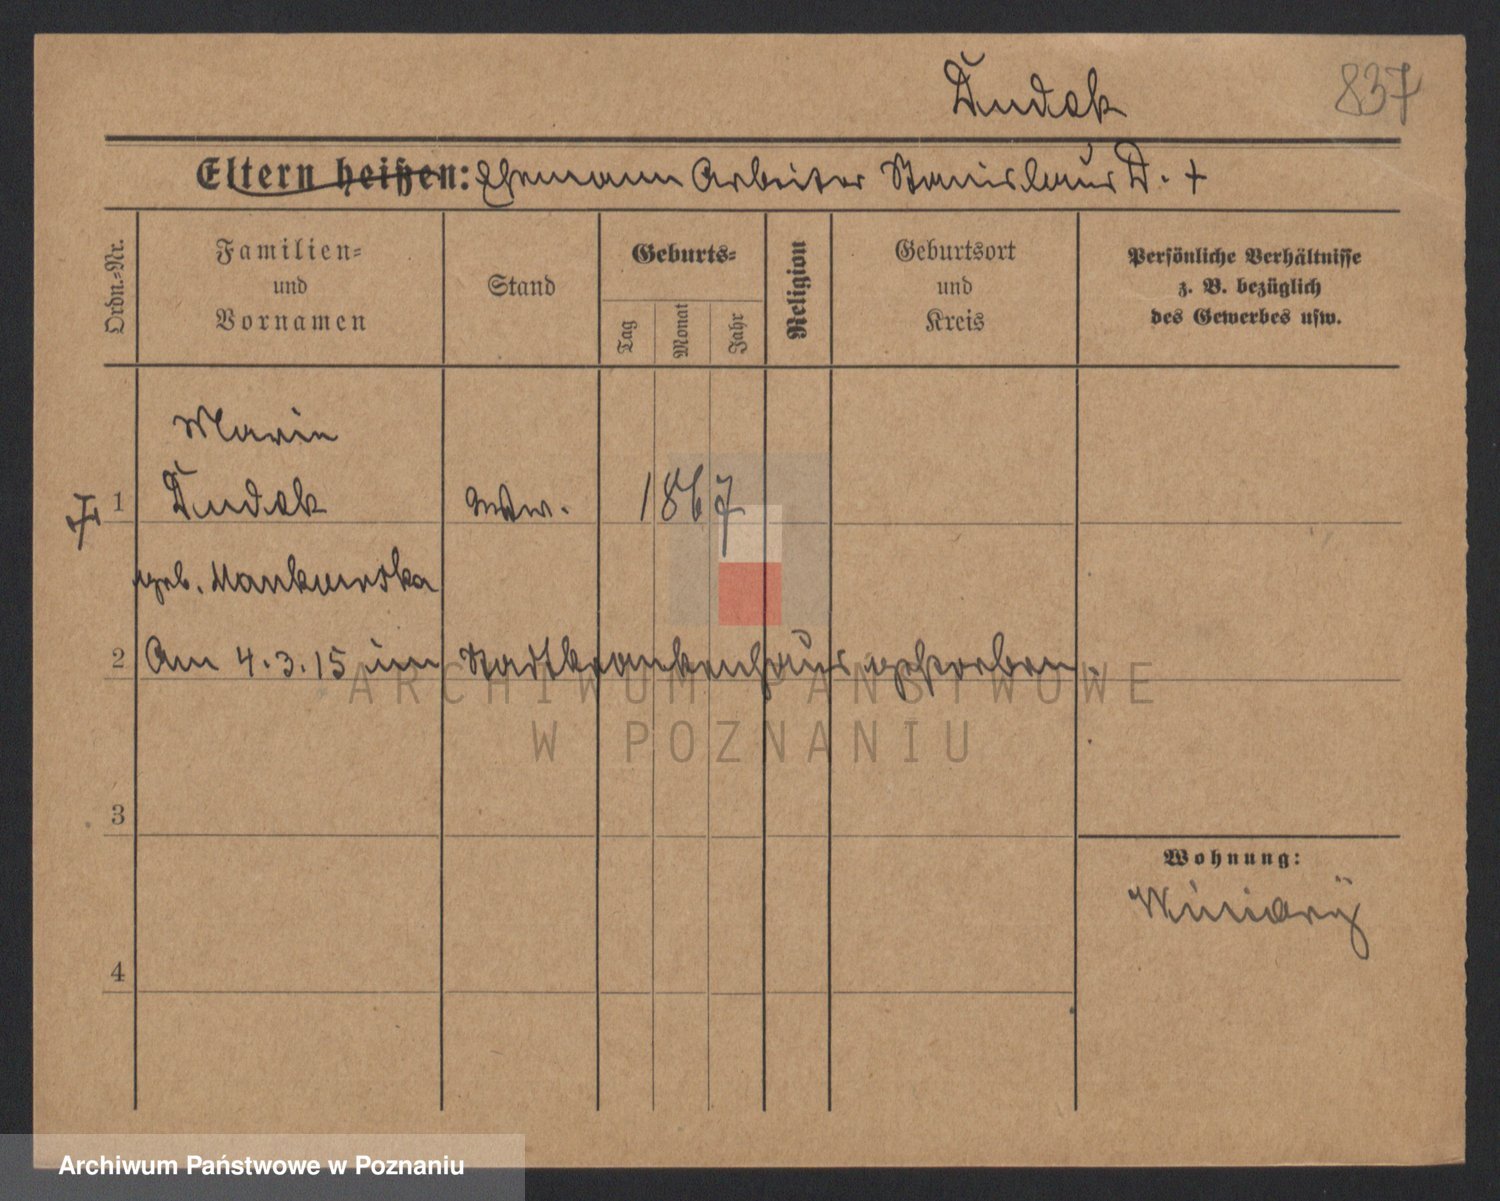 Dudek 837
Eltern heißen: Ehemann Arbeiter Stanislaus D. +
Ordn.=Nr.
Familien=
und
Vornamen
Stand
Geburts=
Tag
Monat
Jahr
Religion
Geburtsort
und
Kreis
Persönliche Verhältnisse
z. B. bezüglich
des Gewerbes usw.
Marie
1 Dudek Wtw. 1867
geb. Mankowska
2 Am 4.3.15 im Stadtkrankenhaus gestorben.
ARCHIWUM PAŃSTWOWE
W POZNANIU
3
Wohnung:
Winiary
4
Archiwum Państwowe w Poznaniu